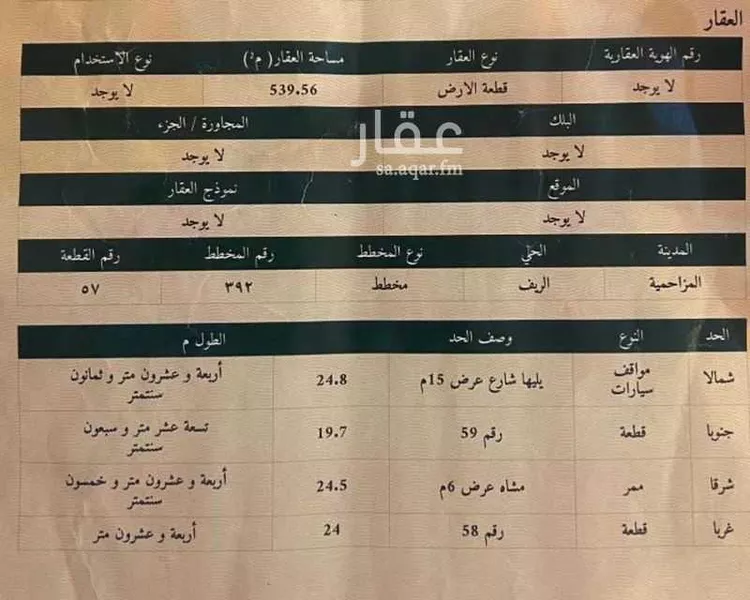 العقار
رقم الهوية العقارية نوع العقار مساحة العقار( م²) نوع الاستخدام
لا يوجد قطعة الارض 539.56 لا يوجد
البلك المجاورة / الجزء
لا يوجد لا يوجد
عقار
sa.aqar.fm
الموقع نموذج العقار
لا يوجد لا يوجد
المدينة الحي نوع المخطط رقم المخطط رقم القطعة
المزاحمية الريف مخطط ٣٩٢ ٥٧
الحد النوع وصف الحد الطول م
شمالا مواقف سيارات يليها شارع عرض 15م 24.8 أربعة و عشرون متر و ثمانون سنتمتر
جنوبا قطعة رقم 59 19.7 تسعة عشر متر و سبعون سنتمتر
شرقا ممر مشاه عرض 6م 24.5 أربعة و عشرون متر و خمسون سنتمتر
غربا قطعة رقم 58 24 أربعة و عشرون متر